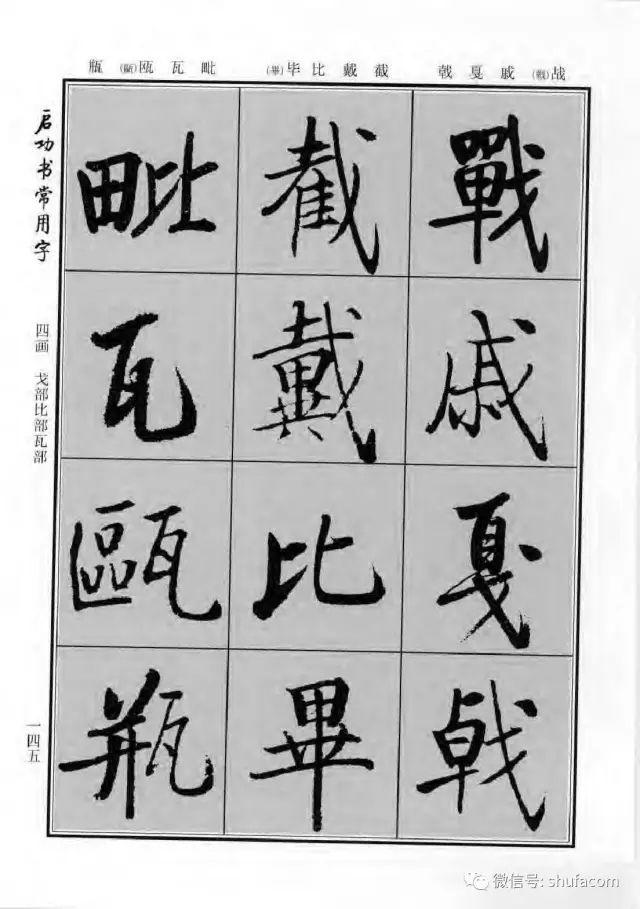 战(戰)戚戛戟
截戴比毕(畢)
毗瓦瓯(甌)瓶
戰戚戛戟
截戴比畢
毗瓦甌瓶
启功书常用字
四画 戈部比部瓦部
一四五
微信号: shufacom